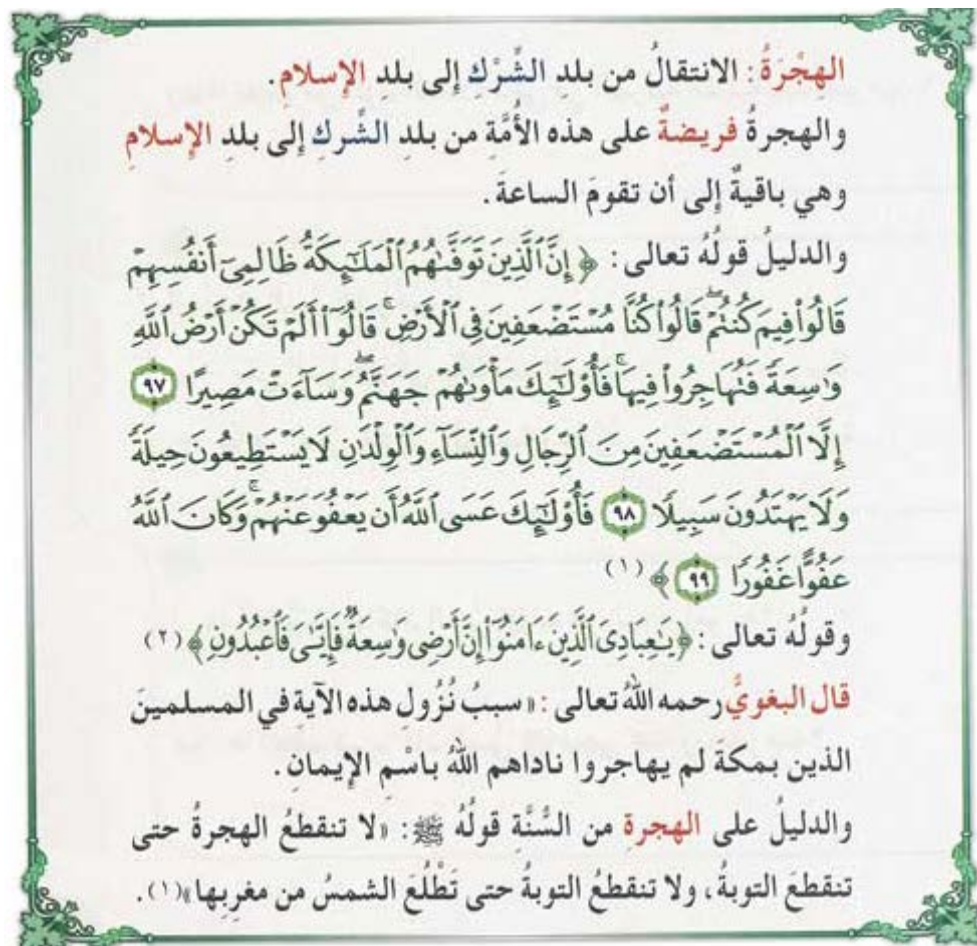 الهِجْرَةُ: الانتقالُ من بلد الشِّرْكِ إلى بلدِ الإسلامِ.
والهجرةُ فريضةٌ على هذه الأُمَّة من بلدِ الشِّركِ إلى بلدِ الإسلامِ
وهي باقيةٌ إلى أن تقومَ الساعةَ.
والدليلُ قولُهُ تعالى: ﴿ إِنَّ ٱلَّذِينَ تَوَفَّىٰهُمُ ٱلْمَلَـٰٓئِكَةُ ظَالِمِىٓ أَنفُسِهِمْ
قَالُوا۟ فِيمَ كُنتُمْ ۖ قَالُوا۟ كُنَّا مُسْتَضْعَفِينَ فِى ٱلْأَرْضِ ۚ قَالُوٓا۟ أَلَمْ تَكُنْ أَرْضُ ٱللَّهِ
وَٰسِعَةً فَتُهَاجِرُوا۟ فِيهَا ۚ فَأُو۟لَـٰٓئِكَ مَأْوَىٰهُمْ جَهَنَّمُ ۖ وَسَآءَتْ مَصِيرًا ٩٧
إِلَّا ٱلْمُسْتَضْعَفِينَ مِنَ ٱلرِّجَالِ وَٱلنِّسَآءِ وَٱلْوِلْدَٰنِ لَا يَسْتَطِيعُونَ حِيلَةً
وَلَا يَهْتَدُونَ سَبِيلًا ٩٨ فَأُو۟لَـٰٓئِكَ عَسَى ٱللَّهُ أَن يَعْفُوَ عَنْهُمْ ۚ وَكَانَ ٱللَّهُ
عَفُوًّا غَفُورًا ٩٩ ﴾ (١)
وقولُهُ تعالى: ﴿ يَـٰعِبَادِىَ ٱلَّذِينَ ءَامَنُوٓا۟ إِنَّ أَرْضِى وَٰسِعَةٌ فَإِيَّـٰىَ فَٱعْبُدُونِ ﴾ (٢)
قال البغويُّ رحمه اللهُ تعالى: «سببُ نُزُولِ هذه الآيةِ في المسلمينَ
الذين بمكةَ لم يهاجروا ناداهم اللهُ باسْمِ الإيمانِ.
والدليلُ على الهجرةِ من السُّنَّةِ قولُهُ ﷺ: «لا تنقطعُ الهجرةُ حتى
تنقطعَ التوبةُ، ولا تنقطعُ التوبةُ حتى تَطْلُعَ الشمسُ من مغرِبِها»(١).